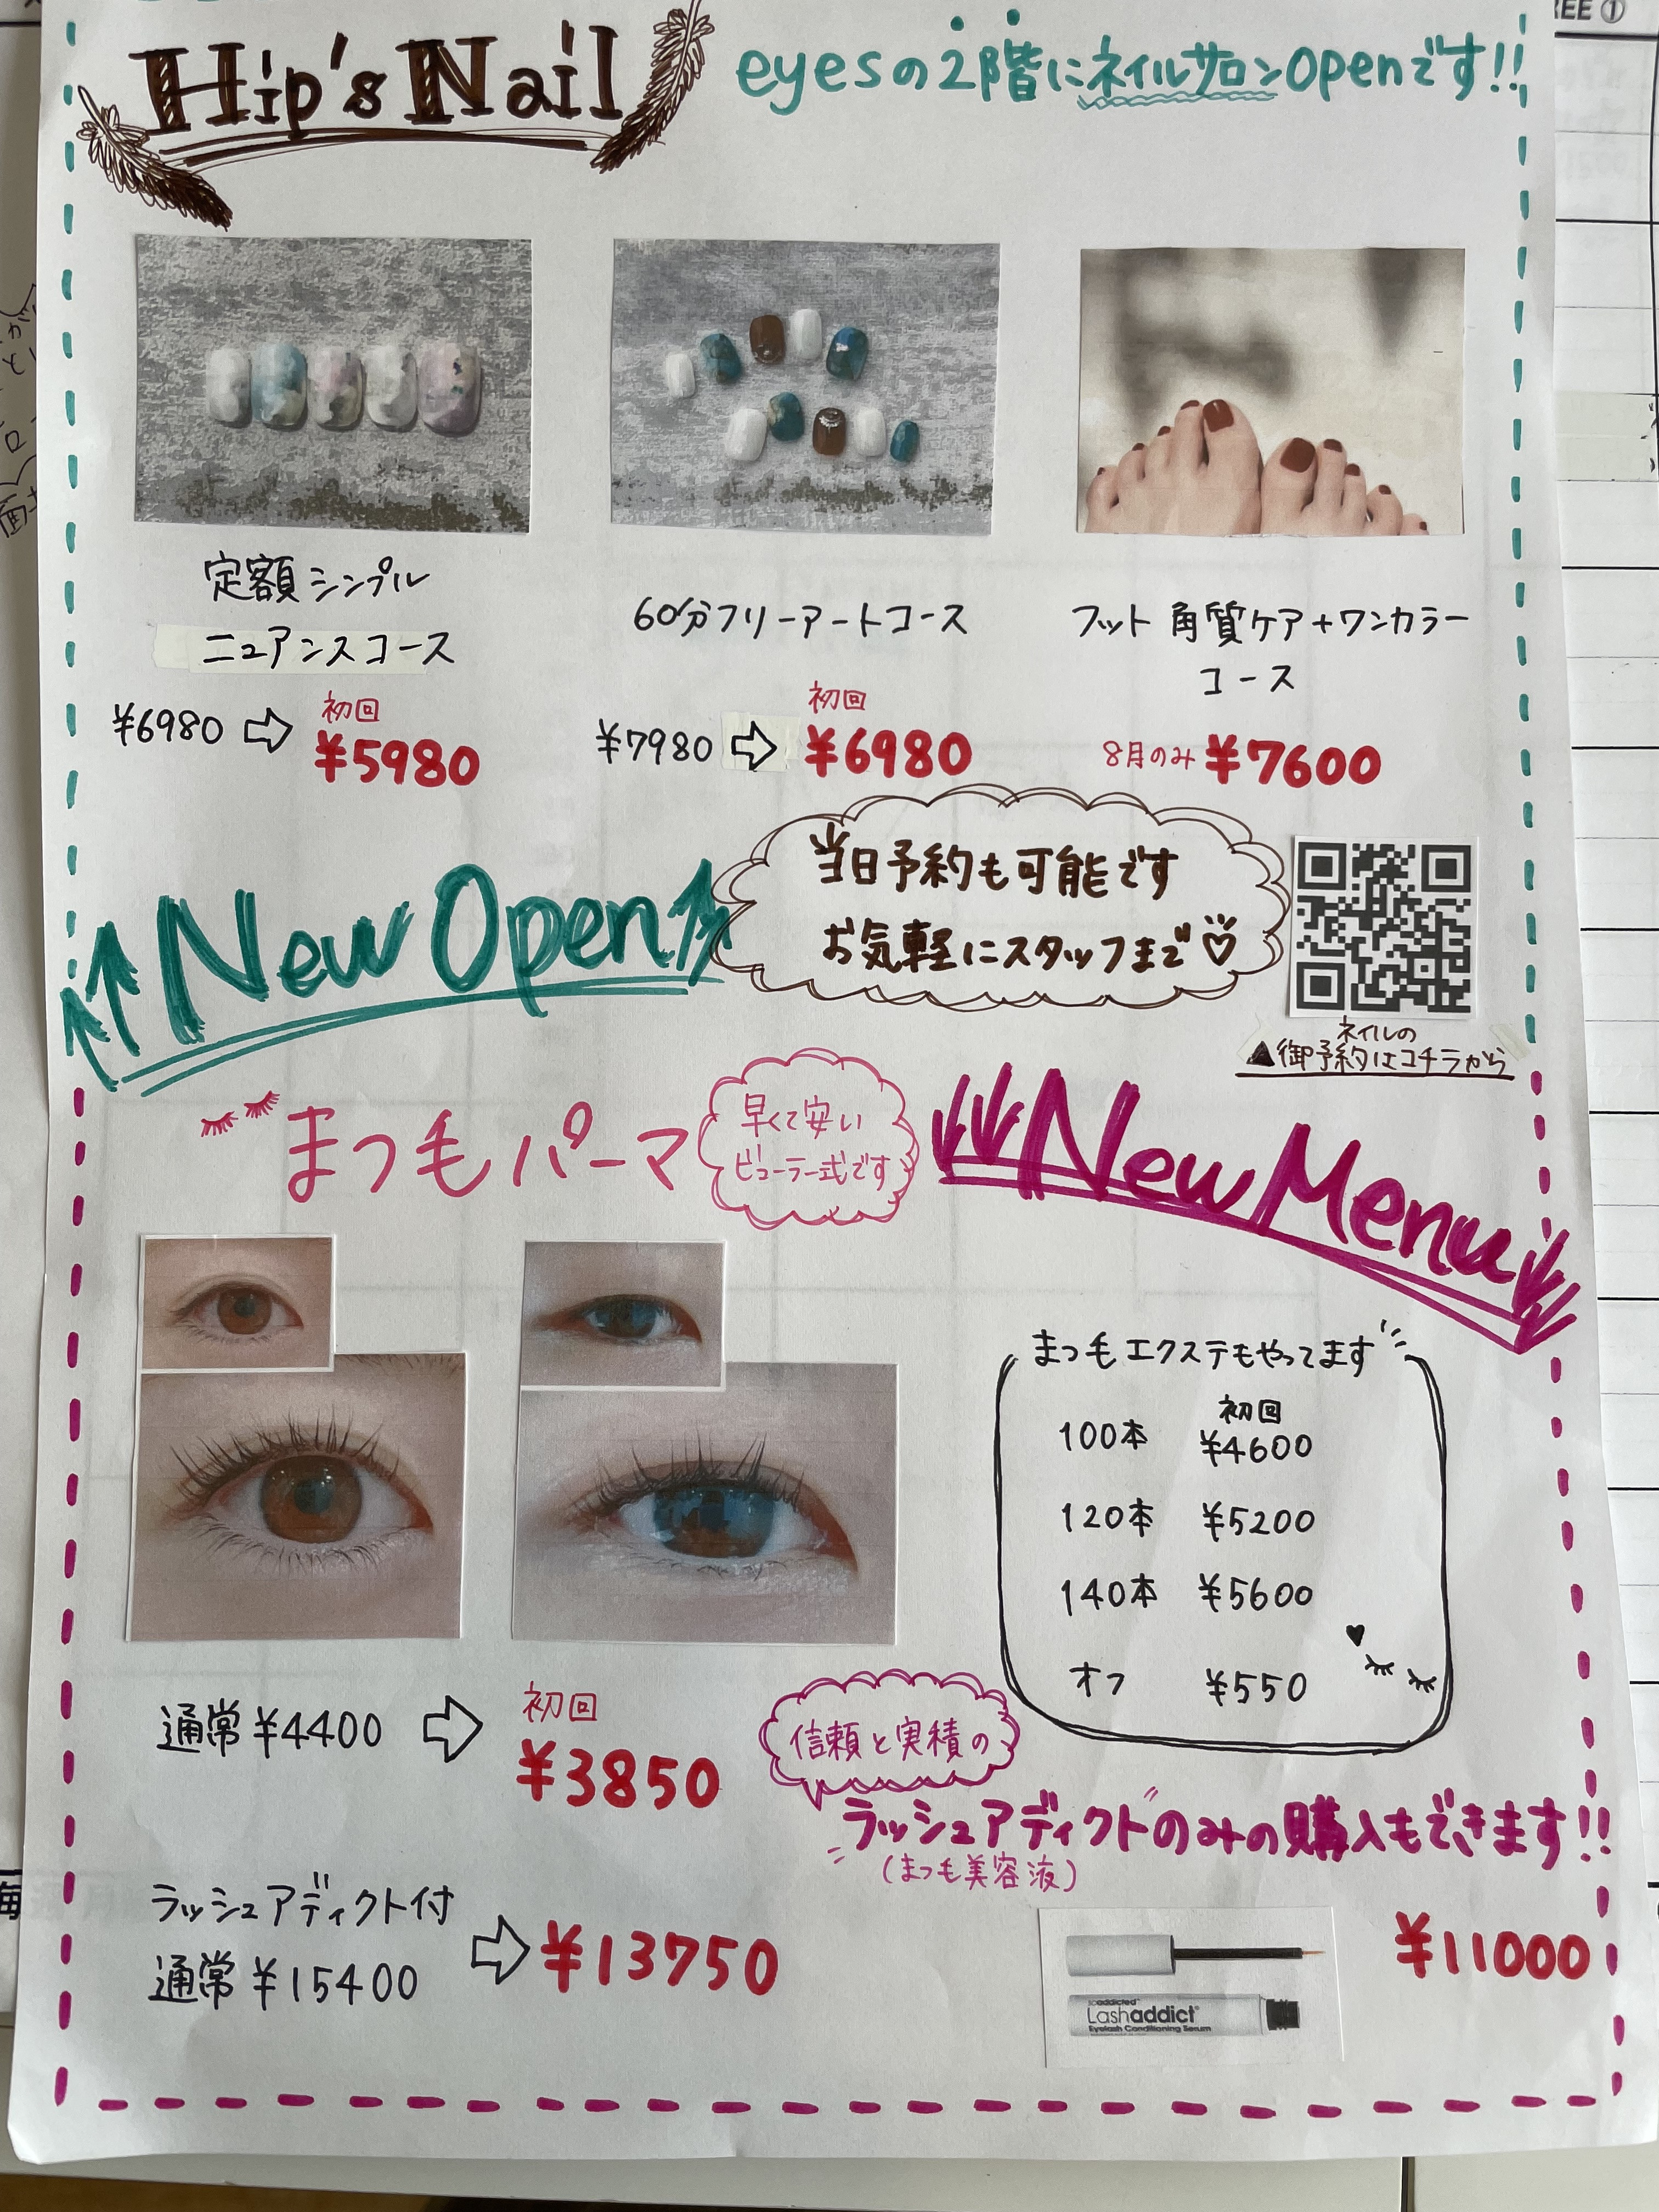 Hip's Nail
eyesの2階にネイルサロンOpenです!!
定額シンプル
ニュアンスコース
¥6980 ⇨ 初回 ¥5980
60分フリーアートコース
¥7980 ⇨ 初回 ¥6980
フット 角質ケア+ワンカラー
コース
8月のみ ¥7600
New Open
当日予約も可能です
お気軽にスタッフまで♡
ネイルの
▲御予約はコチラから
まつ毛パーマ
早くて安い
ビューラー式です
New Menu
まつ毛エクステもやってます
初回
100本 ¥4600
120本 ¥5200
140本 ¥5600
オフ ¥550
通常 ¥4400 ⇨ 初回 ¥3850
信頼と実積の
ラッシュアディクトのみの購入もできます!!
(まつも美容液)
ラッシュアディクト付
通常 ¥15400 ⇨ ¥13750
¥11000
Lashaddict
Eyelash Conditioning Serum